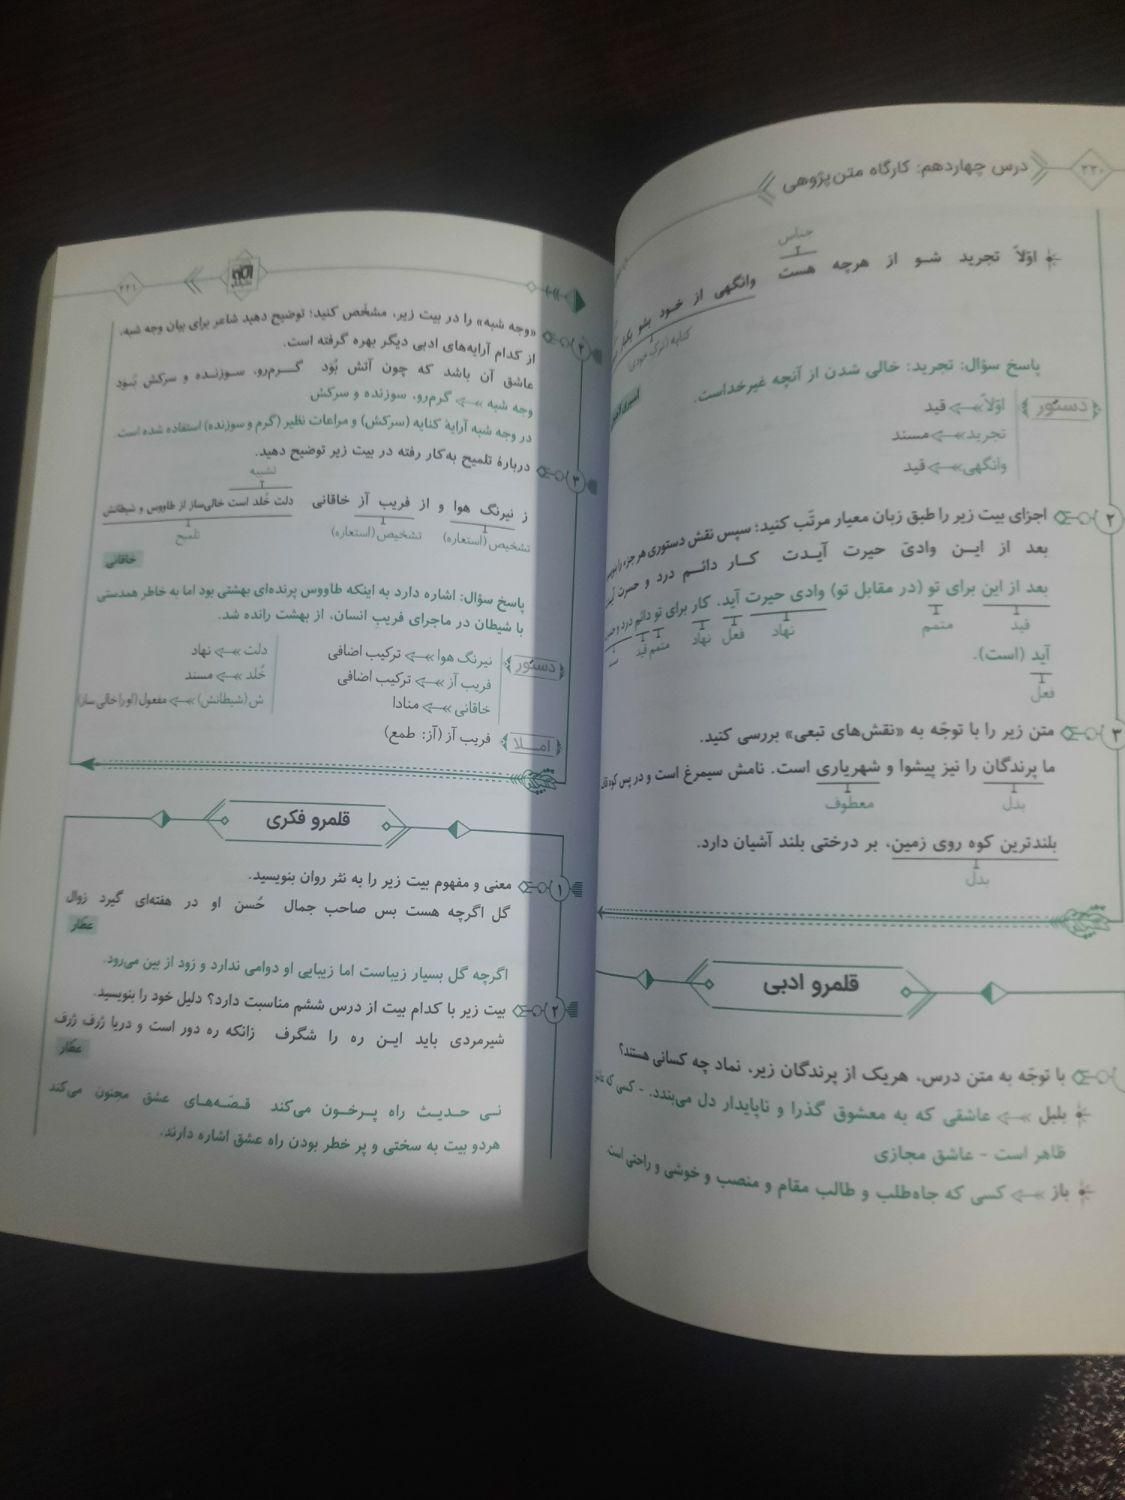 ۲۳۰
درس چهاردهم: کارگاه متن‌پژوهی
جناس
اوّلاً تجرید شو از هرچه هست وانگهی از خود بشو یکبار
کنایه (ترک خودی)
پاسخ سؤال: تجرید: خالی شدن از آنچه غیرخداست.
دستور
اوّلاً قید
تجرید مسند
وانگهی قید
۲ اجزای بیت زیر را طبق زبان معیار مرتّب کنید؛ سپس نقش دستوری هر جزء را بنویسید
بعد از ایـن وادیّ حیرت آیـدت کـار دائـم درد و حسرت
بعد از این برای تو (در مقابل تو) وادی حیرت آید. کار برای تو دائم درد و
قید متمم نهاد فعل نهاد متمم قید
آید (است).
فعل
۳ متن زیر را با توجّه به «نقش‌های تبعی» بررسی کنید.
ما پرندگان را نیز پیشوا و شهریاری است. نامش سیمرغ است و در پس کوه قاف
بدل معطوف
بلندترین کوه روی زمین، بر درختی بلند آشیان دارد.
بدل
قلمرو ادبی
با توجّه به متن درس، هریک از پرندگان زیر، نماد چه کسانی هستند؟
بلبل عاشقی که به معشوق گذرا و ناپایدار دل می‌بندد. - کسی که
ظاهر است - عاشق مجازی
باز کسی که جاه‌طلب و طالب مقام و منصب و خوشی و راحتی است.
۲۳۱
۲ «وجه شبه» را در بیت زیر، مشخّص کنید؛ توضیح دهید شاعر برای بیان وجه شبه،
از کدام آرایه‌های ادبی دیگر بهره گرفته است.
عاشق آن باشد که چون آتش بُوَد گـرم‌رو، سـوزنـده و سرکش بُـوَد
وجه شبه گرم‌رو، سوزنده و سرکش
در وجه شبه آرایهٔ کنایه (سرکش) و مراعات نظیر (گرم و سوزنده) استفاده شده است.
۳ دربارهٔ تلمیح به‌کار رفته در بیت زیر توضیح دهید.
تشبیه
ز نیرنگ هوا و از فریب آز خاقانی دلت خُلد است خالی‌ساز از طاووس و شیطانش
تشخیص (استعاره) تشخیص (استعاره) تلمیح
خاقانی
پاسخ سؤال: اشاره دارد به اینکه طاووس پرنده‌ای بهشتی بود اما به خاطر همدستی
با شیطان در ماجرای فریبِ انسان، از بهشت رانده شد.
دستور
نیرنگ هوا ترکیب اضافی دلت نهاد
فریب آز ترکیب اضافی خُلد مسند
خاقانی منادا ش (شیطانش) مفعول (او را خالی ساز)
امـلا فریب آز (آز: طمع)
قلمرو فکری
۱ معنی و مفهوم بیت زیر را به نثر روان بنویسید.
گل اگرچه هست بس صاحب جمال حُسن او در هفته‌ای گیرد زوال
عطّار
اگرچه گل بسیار زیباست اما زیبایی او دوامی ندارد و زود از بین می‌رود.
۲ بیت زیر با کدام بیت از درس ششم مناسبت دارد؟ دلیل خود را بنویسید.
شیرمردی باید ایـن ره را شگرف زانکه ره دور است و دریا ژرف ژرف
عطّار
نـی حـدیـث راه پـرخـون می‌کند قـصّـه‌هـای عشق مجنون می‌کند
هردو بیت به سختی و پر خطر بودن راه عشق اشاره دارند.